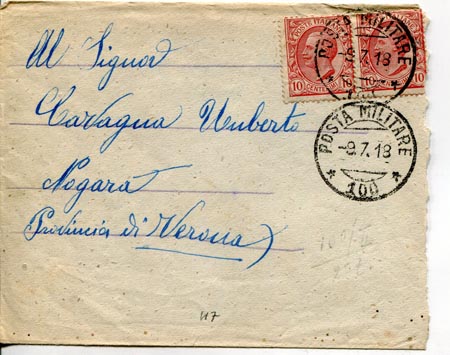 Al Signor
Cavagna Umberto
Nogara
Provincia di Verona)
POSTE ITALIANE
10 CENTESIMI 10
10 10
POSTA MILITARE
-9.7.18
100
POSTA MILITARE
-9.7.18
* 100 *
117